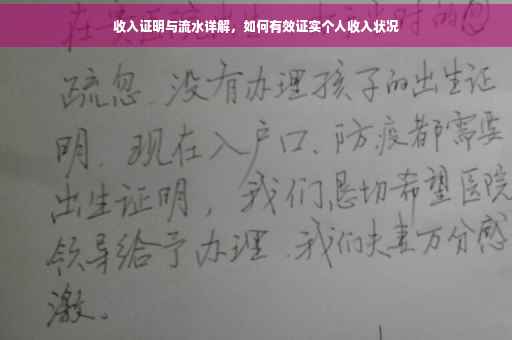 收入证明与流水详解，如何有效证实个人收入状况
疏忽、没有办理孩子的出生证
明、现在入户口、防疫都需要
出生证明，我们恳切希望医院
领导给予办理、我们夫妻万分感
激。